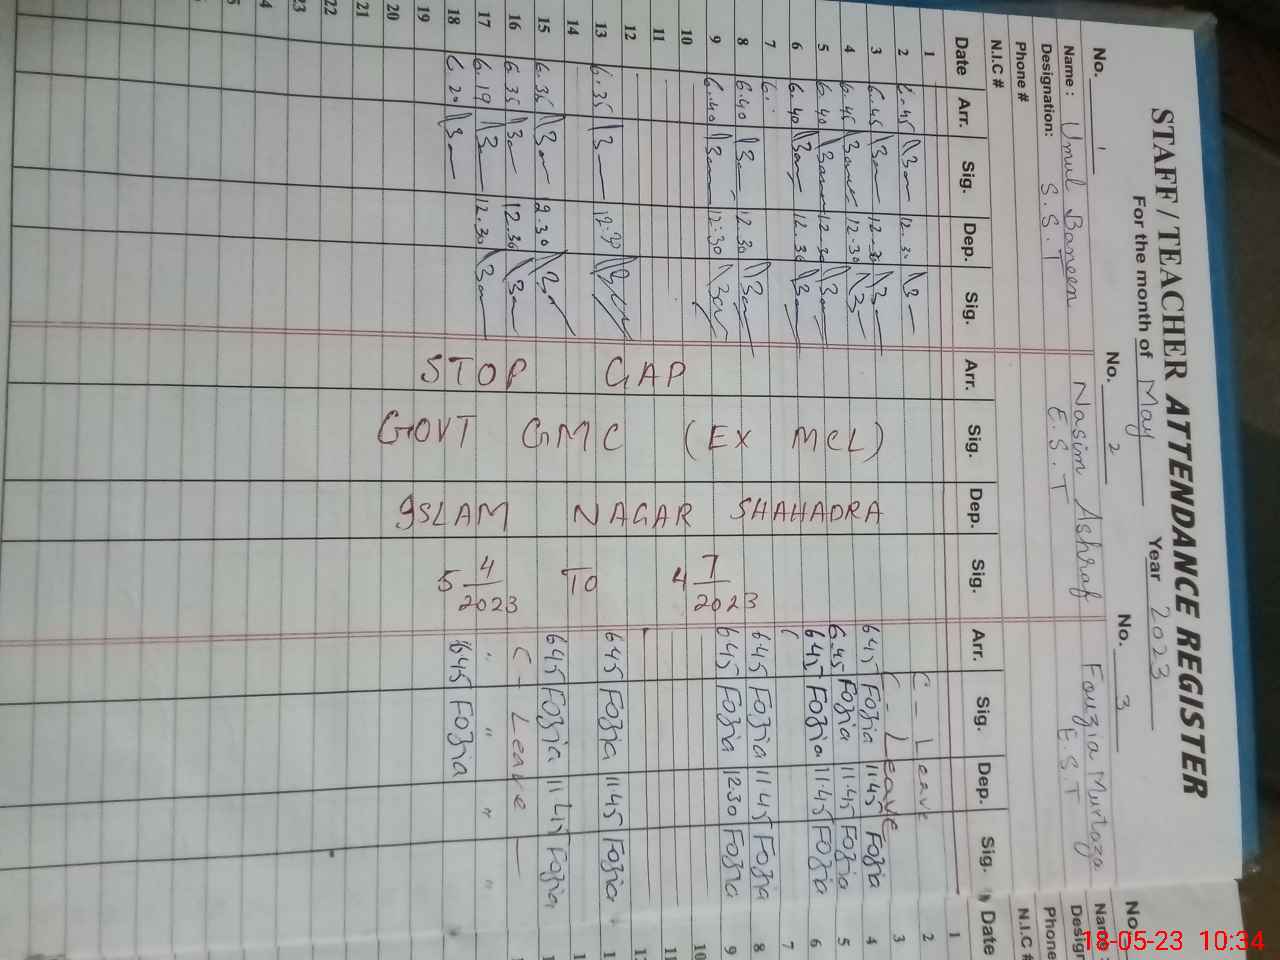 STAFF / TEACHER ATTENDANCE REGISTER
For the month of May Year 2023
No. 1 No. 2 No. 3
Name : Umul Baneen Nasim Ashraf Fouzia Murtaza
Designation: S.S.T E.S.T E.S.T
Phone #
N.I.C #
Date Arr. Sig. Dep. Sig. Arr. Sig. Dep. Sig. Arr. Sig. Dep. Sig.
1
2 6.45 12.30 C - Leave
3 6.45 12-30 C - Leave
4 6.45 12.30 645 Fozia 11.45 Fozia
5 6.40 12-30 6.45 Fozia 11.45 Fozia
6 6.40 12.30 645 Fozia 11.45 Fozia
7 6.
8 6.40 12.30 645 Fozia 1145 Fozia
9 6.40 12:30 645 Fozia 1230 Fozia
10
11
12
13 6.35 12.30 645 Fozia 1145 Fozia
14
15 6.35 2.30 645 Fozia 1145 Fozia
16 6.35 12.30 C - Leave
17 6.19 12.30 " " " "
18 6.20 645 Fozia
19
20
21
22
23
24
STOP GAP
GOVT GMC (EX MCL)
ISLAM NAGAR SHAHADRA
5 4/2023 TO 4 7/2023
No.
Phone
N.I.C #
Date
1
2
3
4
5
6
7
8
9
10
11
18-05-23 10:34